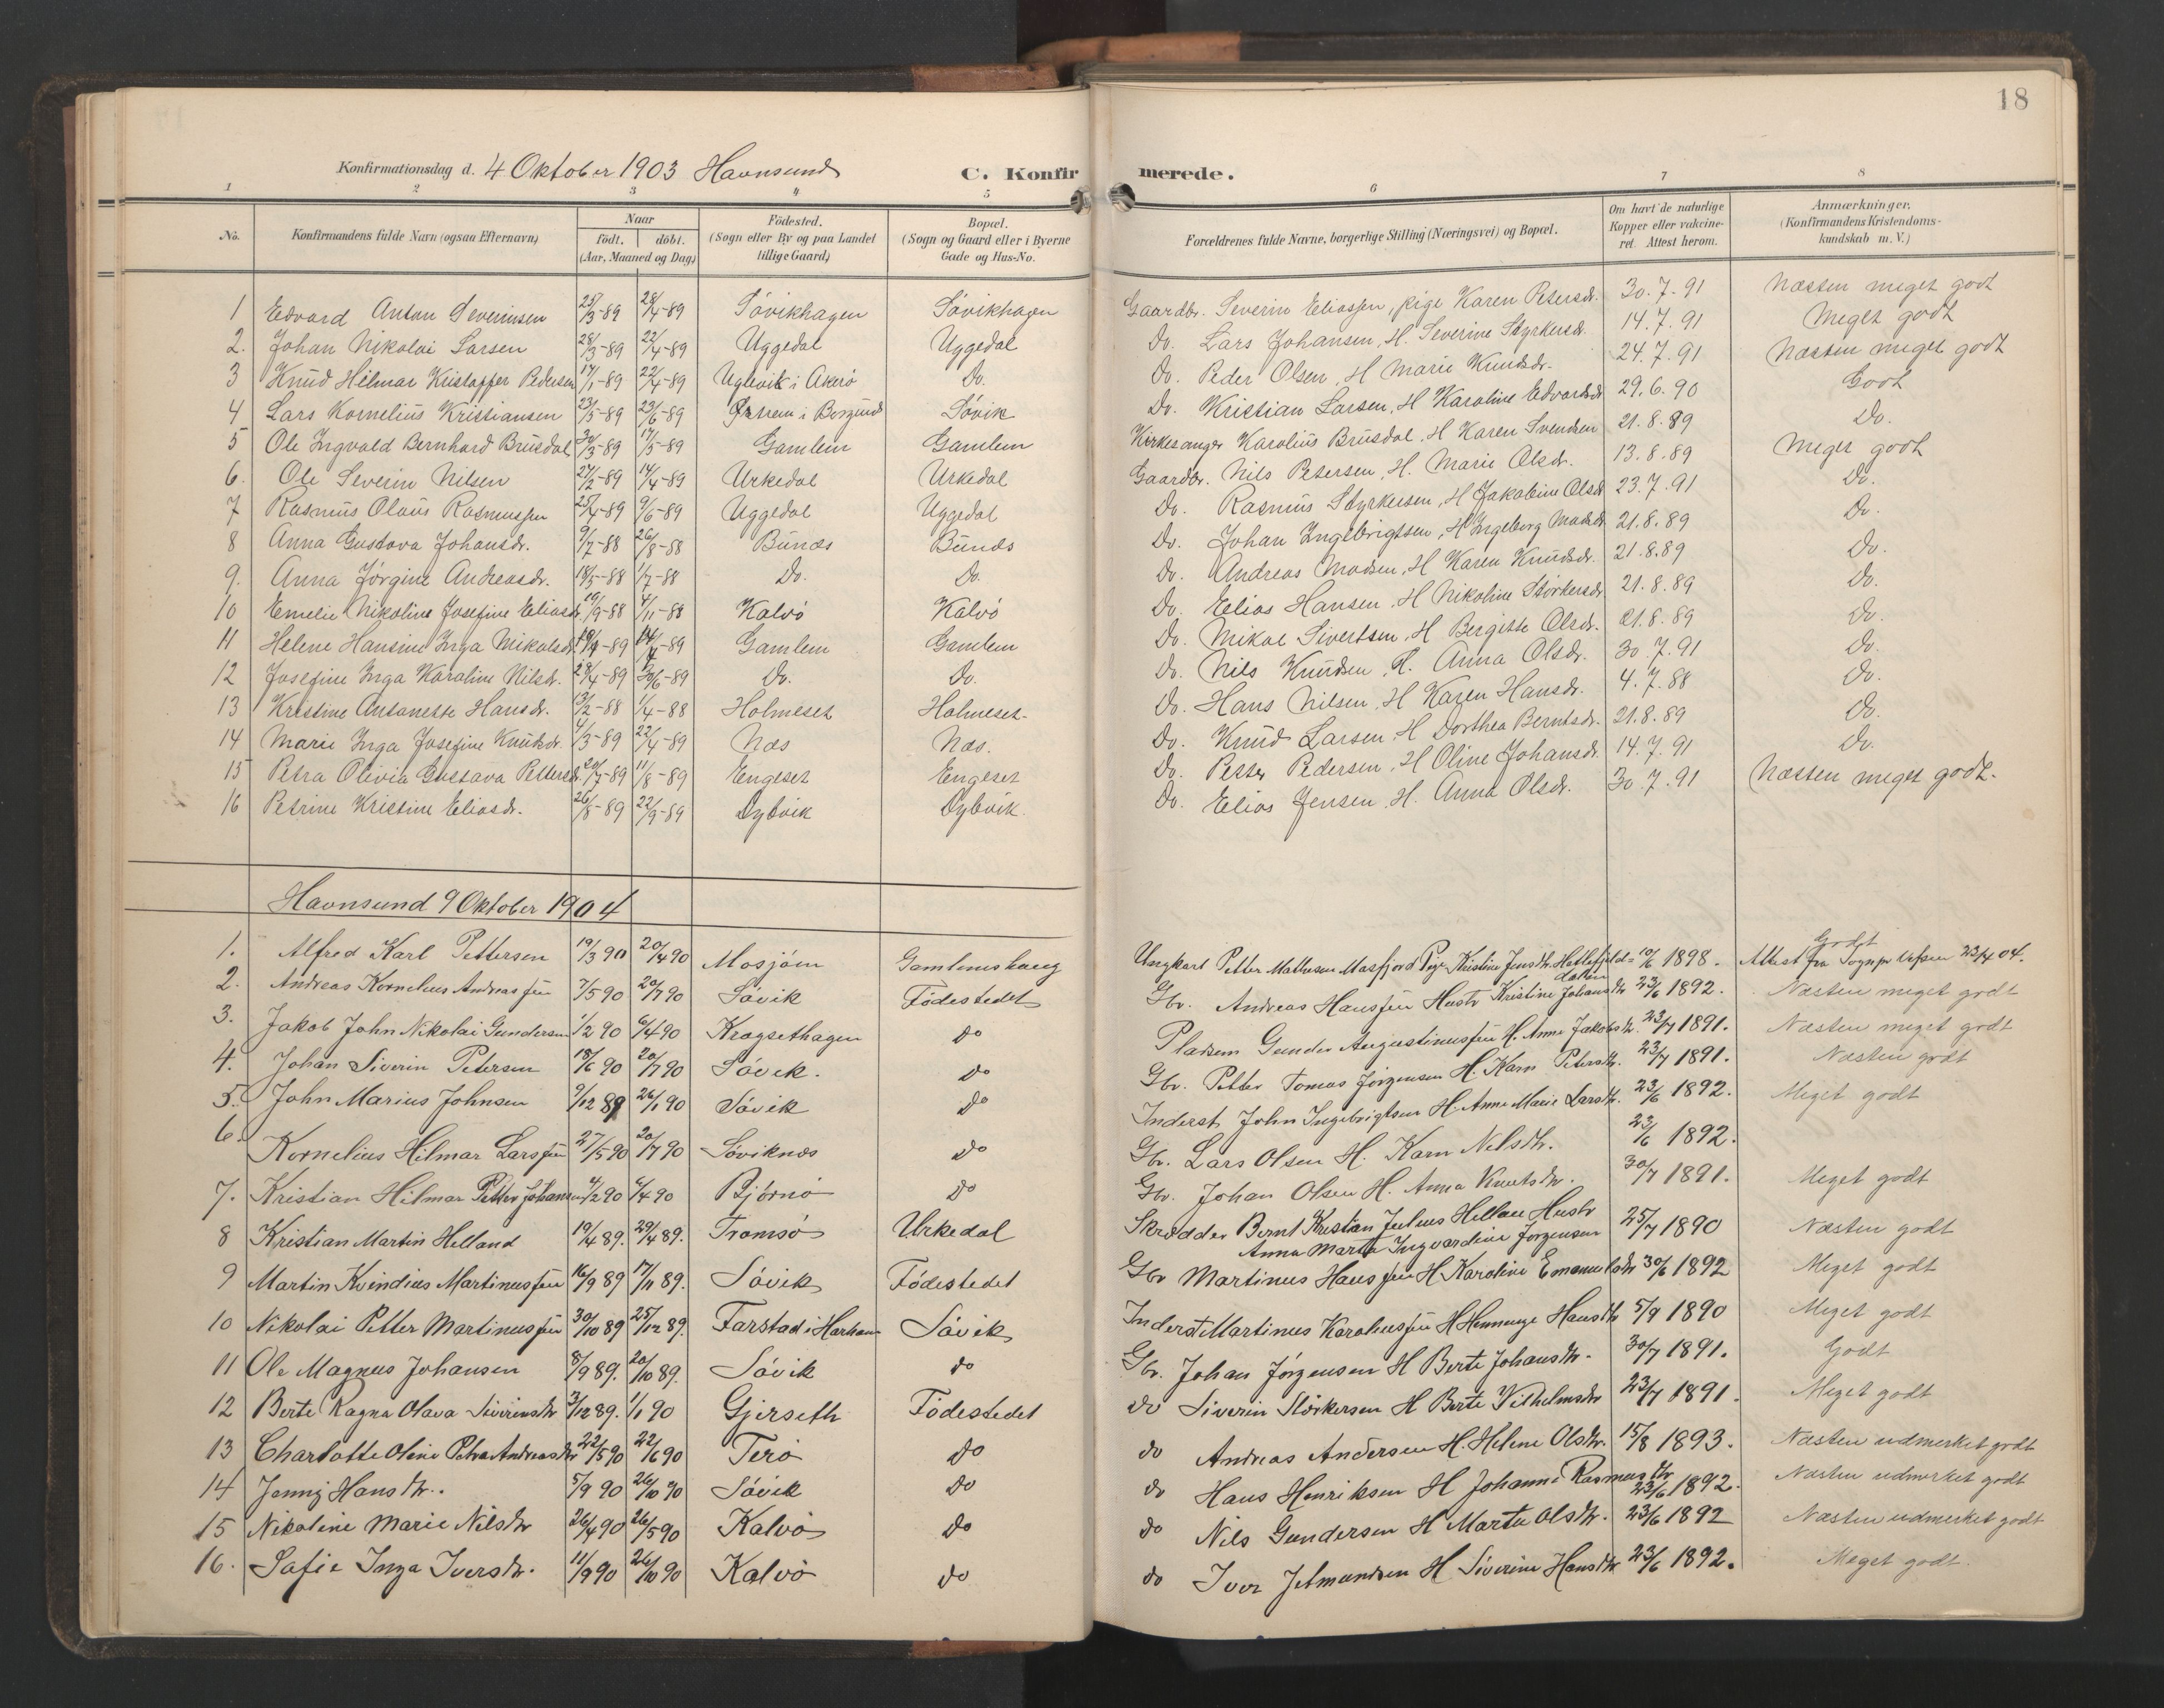 18
Konfirmationsdag d. 4 Oktober 1903 Havnsund C. Konfirmerede.
1 2 3 4 5 6 7 8
No. Konfirmandens fulde Navn (ogsaa Efternavn) Naar født. døbt. (Aar, Maaned og Dag) Fødested. (Sogn eller By og paa Landet tillige Gaard) Bopæl. (Sogn og Gaard eller i Byerne Gade og Hus-No. Forældrenes fulde Navne, borgerlige Stilling (Næringsvei) og Bopæl. Om havt de naturlige Kopper eller vakcineret. Attest herom. Anmærkninger. (Konfirmandens Kristendomskundskab m. V.)
1 Edvard Anton Severinsen 25/3-89 28/4-89 Søvikhagen Søvikhagen Gaardbr. Severin Eliassen, pige Karen Petersdr. 30.7.91 Næsten meget godt
2. Johan Nikolai Larsen 28/3-89 22/4-89 Uggedal Uggedal Do. Lars Johansen, H. Severine Styrkersdr. 14.7.91 Meget godt
3 Knud Hilmar Kristoffer Pedersen 17/1-89 22/4-89 Uglvik i Akerø Do. Do. Peder Olsen, H Marie Knudsdr. 24.7.91 Næsten meget godt
4 Lars Kornelius Kristiansen 23/5-89 23/6-89 i Borgund Søvik Do. Kristian Larsen, H Karoline Edvardsdr 29.6.90 Godt
5 Ole Ingvald Bernhard Brusdal 30/3-89 17/5-89 Gamlem Gamlem Kirkesanger Karolius Brusdal, H Karen Svendsen 21.8.89 Do.
6. Ole Severin Nilsen 27/2-89 14/4-89 Urkedal Urkedal Gaardbr. Nils Petersen, H. Marie Olsdr. 13.8.89 Meget godt
7 Rasmus Olaus Rasmussen 25/4-89 9/6-89 Uggedal Uggedal Do. Rasmus Styrkersen, H Jakobine Olsdr 23.7.91 Do.
8 Anna Gustava Johansdr. 9/7-88 26/8-88 Bunds Bunds Do. Johan Ingebrigtsen, H Ingeborg Madsdr 21.8.89 Do.
9. Anna Jørgine Andreasdr. 18/5-88 1/7-88 Do. Do. Do. Andreas Madsen, H Karen Knudsdr. 21.8.89 Do.
10 Emelie Nikoline Josefine Eliasdr. 19/9-88 4/11-88 Kalvø Kalvø Do. Elias Hansen, H Nikoline Størkersdr 21.8.89 Do.
11 Helene Hansine Inga Mikalsdr. -89 -89 Gamlem Gamlem Do. Mikal Sivertsen, H Bergitte Olsdr. 21.8.89 Do.
12 Josefine Inga Karoline Nilsdr. 28/4-89 30/6-89 Do. Do. Do. Nils Knudsen, H. Anna Olsdr. 30.7.91 Do.
13 Kristine Antonette Hansdr. 13/2-88 1/4-88 Holmeset Holmeset. Do. Hans Nilsen, H Karen Hansdr. 4.7.88 Do.
14 Marie Inga Josefine Knudsdr. 4/3-89 22/4-89 Næs Næs. Do. Knud Larsen, H Dorthea Berntsdr. 21.8.89 Do.
15 Petra Olivia Gustava Pettersdr. 20/7-89 11/8-89 Engeset Engeset Do. Petter Pedersen, H Oline Johansdr. 14.7.91 Do.
16 Petrine Kristine Eliasdr. 26/8-89 22/9-89 Dybvik Dybvik. Do. Elias Jensen, H. Anna Olsdr. 30.7.91 Næsten meget godt.
Havnsund 9 Oktober 1904
1. Alfred Karl Pettersen 19/3 90 20/4 90 Mosjøen Gamlemshaug Ungkarl Petter Mathesen Mosfjord Pige Kristine Jensdtr. 10/6 1898. Godt Attest fra Sognepr Vefsen 23/4 04.
2. Andreas Kornelius Andreassen 7/5 90 20/7 90 Søvik Fødestedet Gbr. Andreas Hanssen Hustr Kristine Johansdtr 23/6 1892. Næsten meget godt
3. Jakob John Nikolai Gundersen 1/2 90 6/4 90 Krogsethagen do Pladsm Gunder Augustinussen H. Anne Jakobsdtr. 23/7 1891. Næsten meget godt
4. Johan Siverin Petersen 18/6 90 20/7 90 Søvik. do Gbr. Petter Tomas Jørgensen H. Karn Petersdtr. 23/7 1891. Næsten godt
5. John Marius Johnsen 9/12 89 26/1 90 Søvik do Inderst John Ingebrigtsen H. Anne Marie Larsdtr. 23/6 1892. Meget godt
6. Kornelius Hilmar Larssen 27/5 90 20/7 90 Søviknes do Gbr. Lars Olsen H. Karn Nilsdtr. 23/6 1892.
7. Kristian Hilmar Petter Johansen 4/2 90 6/4 90 Bjørnø do Gbr. Johan Olsen H. Anna Knutsdtr. 30/7 1891. Meget godt
8 Kristian Martin Helland 19/4 89. 29/4 89. Tromsø Urkedal Skrædder Bernt Kristian Julius Helland Hustr Anna Marta Ingvardine Jørgensen 25/7 1890 Næsten godt
9 Martin Kvindius Martinussen 16/9 89 17/11 89. Søvik Fødestedet Gbr Martinus Hanssen H. Karoline Emanuelsdtr 30/6 1892 Meget godt
10 Nikolai Petter Martinussen 30/10 89 25/12 89. Farstad i Harham Søvik Inderst Martinus Karoliussen H Hansdtr 5/9 1890 Meget godt
11 Ole Magnus Johansen 8/9 89. 20/10 89. Søvik do Gbr. Johan Jørgensen H Berte Johansdtr. 30/7 1891. Godt
12 Berte Ragna Olava Siverinsdtr 3/12 89. 1/1 90 Gjerseth Fødestedet do Siverin Størkersen H Berte Vilhelmsdtr 23/7 1891. Meget godt
13 Charlotte Oline Petra Andreasdtr 22/5 90 22/6 90 Terø do do Andreas Andersen H. Helene Olsdtr. 15/8 1893. Næsten udmerket godt
14 Jenny Hansdtr. 5/9 90 26/10 90 Søvik do do Hans Henriksen H Johanne Rasmusdtr 23/6 1892. Næsten udmerket godt
15 Nikoline Marie Nilsdtr 26/4 90 26/5 90 Kalvø do do Nils Gundersen H Marta Olsdtr. 23/6 1892 Næsten udmerket godt
16. Sofie Inga Iversdtr. 11/9 90 26/10 90 Kalvø do do Iver Jetmundsen H Siverine Hansdtr 23/6 1892. Meget godt